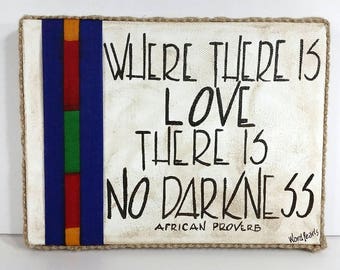 WHERE THERE IS
LOVE
THERE IS
NO DARKNESS
AFRICAN PROVERB
WordPearls